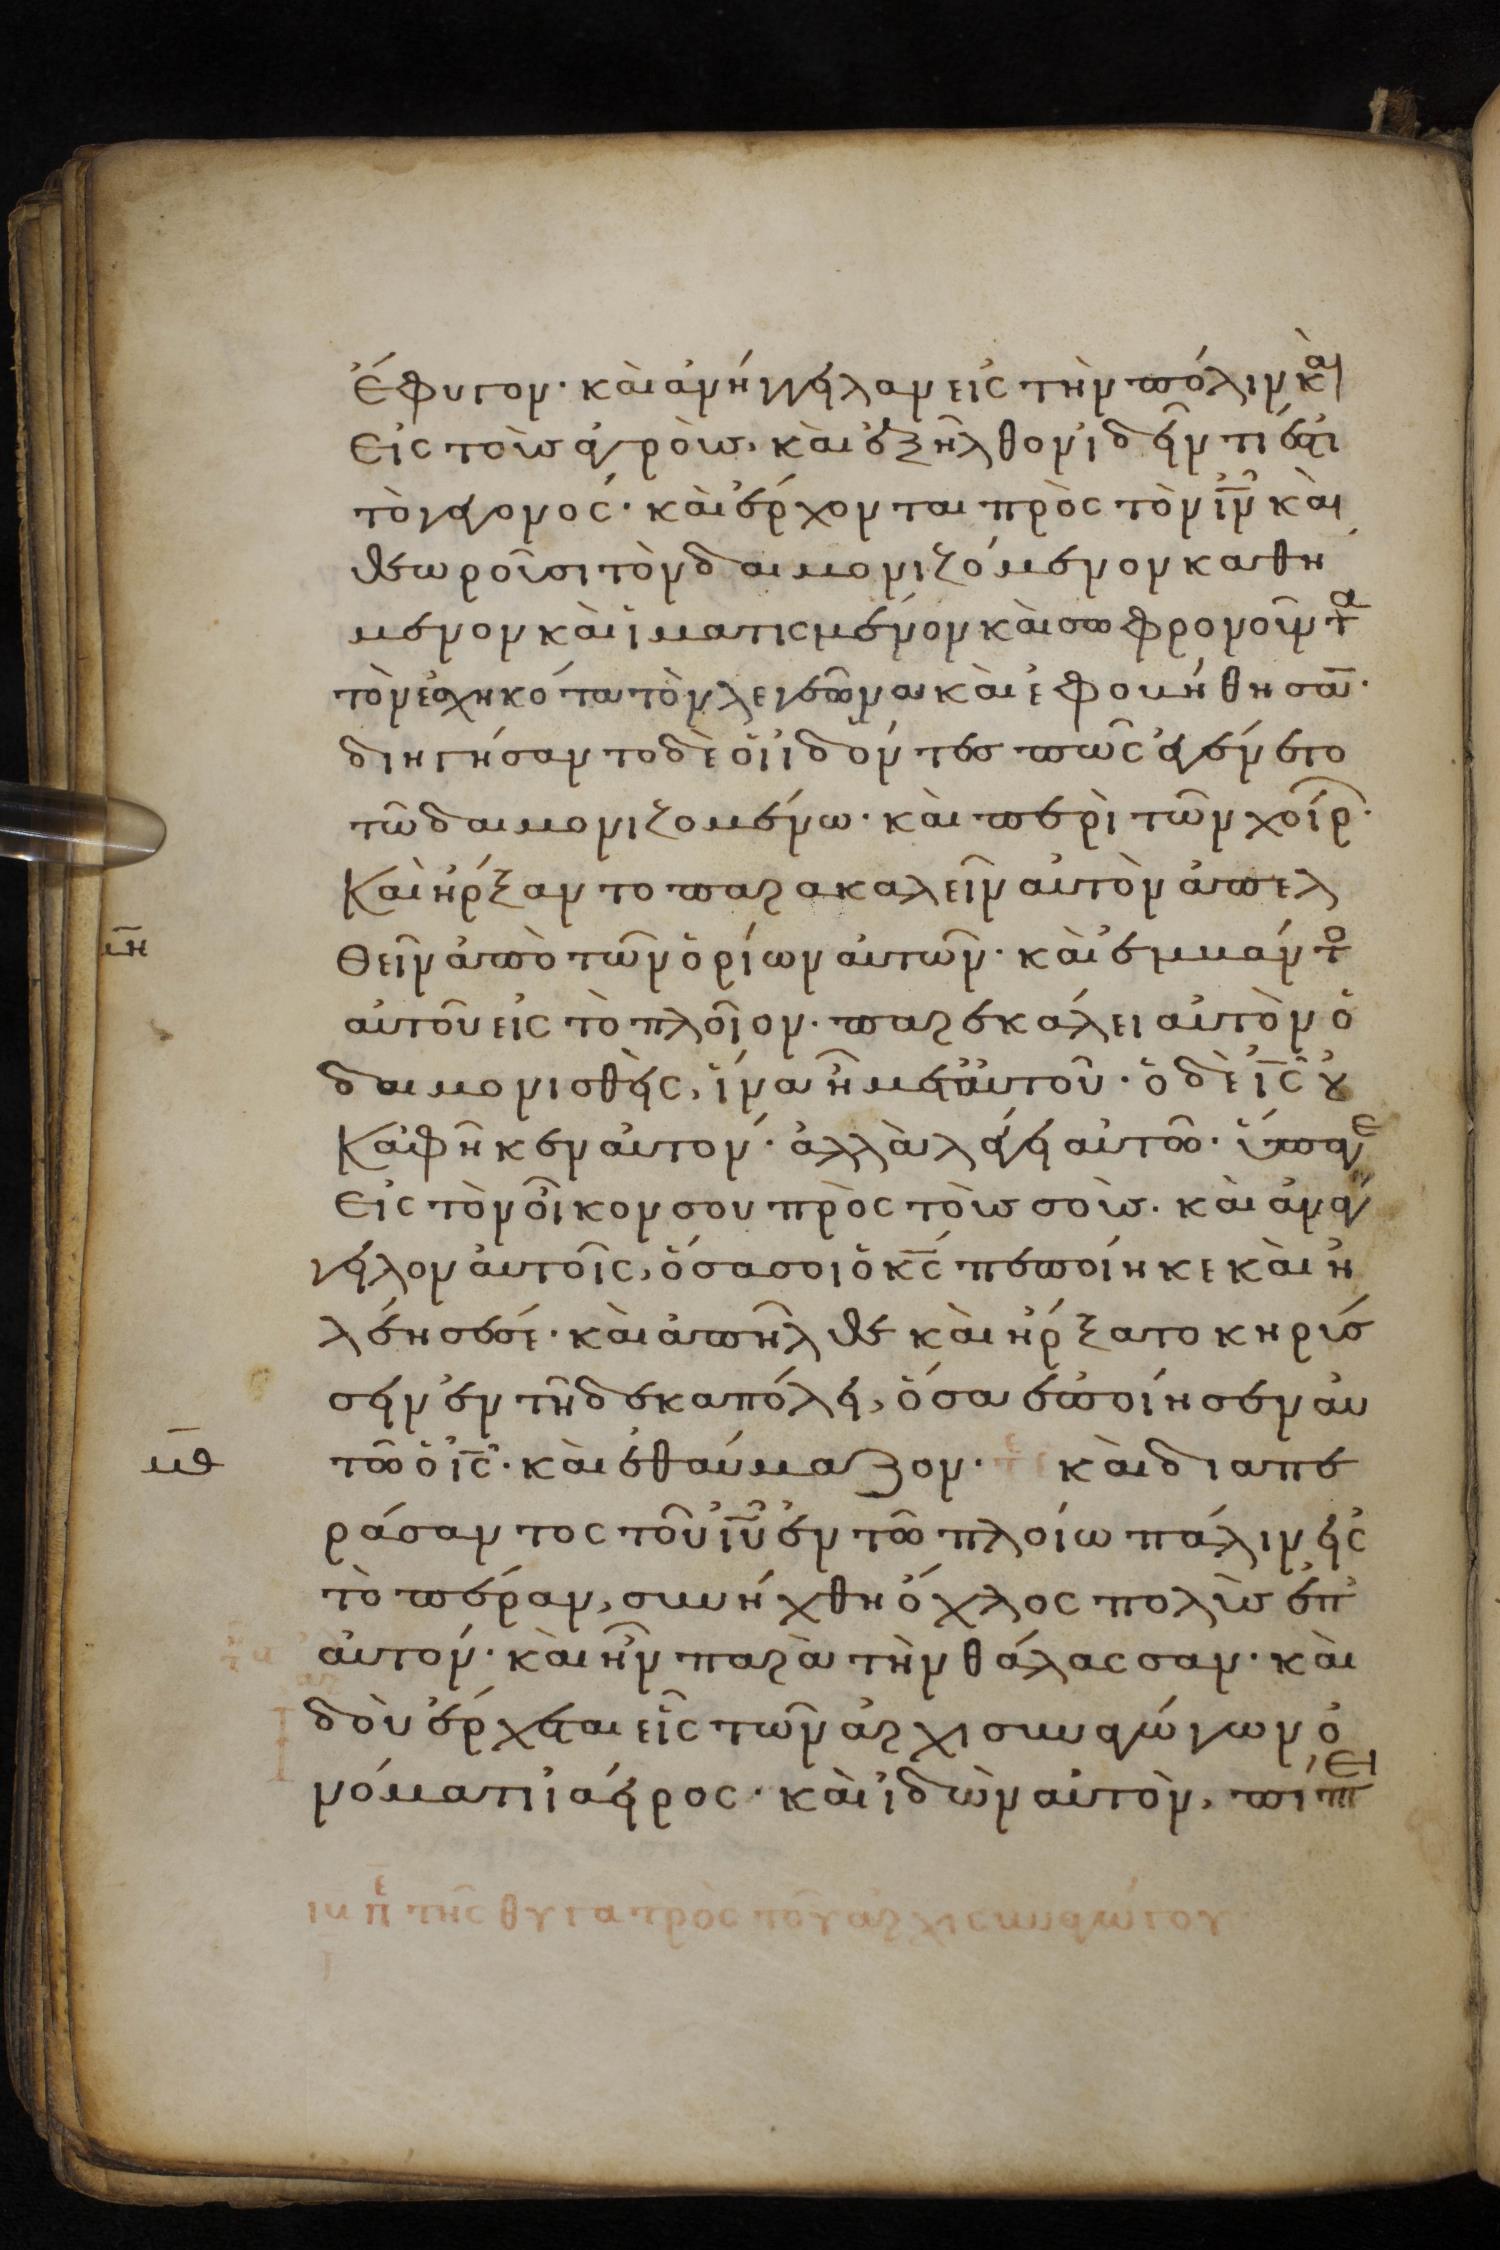 ἔφυγον· καὶ ἀνήγγειλαν εἰς τὴν πόλιν κὰι
εἰς τοὺς ἀγρούς, καὶ ἐξῆλθον ἰδεῖν τί ἐστι
τὸ γεγονός· καὶ ἔρχονται πρὸς τὸν ἰν̅ καὶ
θεωροῦσι τὸν δαιμονιζόμενον καθή
μενον καὶ ἱματισμένον καὶ σωφρονοῦντα
τὸν ἐσχηκότα τὸν λεγεῶνα καὶ ἐφοβήθησαν·
διηγήσαντο δὲ ὁι ἰδόντες πῶς ἐγένετο
τῶ δαιμονιζομένω· καὶ περὶ τῶν χοίρ·
Καὶ ἤρξαντο παρακαλεῖν αὐτὸν ἀπελ
μη̅ θεῖν ἀπὸ τῶν ὁρίων αὐτῶν· καὶ ἐμβάντο
αὐτοῦ εἰς τὸ πλοῖον· παρεκάλει αὐτὸν ὁ
δαιμονισθεὶς, ἵνα ἦ μετ' αὐτοῦ· ὁ δὲ ις̅ οὐ
κ ἀφῆκεν αὐτόν· ἀλλὰ λέγει αὐτῶ· ὕπαγε
εἰς τὸν οἶκον σου πρὸς τοὺς σούς· καὶ ἀναγ
γειλον αὐτοῖς, ὅσα σοι ὁ κς̅ πεποίηκε καὶ ἠ
λέησέ σε· καὶ ἀπῆλθε καὶ ἤρξατο κηρύσ
σειν ἐν τῆ δεκαπόλει, ὅσα ἐποίησεν αὐ
μθ̅ τῶ ὁ ις̅· καὶ ἐθαύμαζον· καὶ διαπε
ράσαντος τοῦ ιυ̅ ἐν τῶ πλοίω πάλιν εἰς
τὸ πέραν, συνήχθη ὄχλος πολὺς ἐπ'
αὐτόν· καὶ ἦν παρὰ τὴν θάλασσαν· καὶ
δοὺ ἔρχεται εἷς τῶν ἀρχισυναγώγων ὀ
νόματι ἰάειρος· καὶ ἰδὼν αὐτὸν, πίπτει
τῆς θυγατρὸς τοῦ ἀρχισυναγώγου